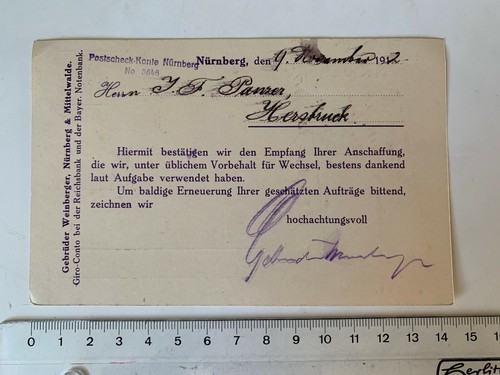 Gebrüder Weinberger, Nürnberg & Mittelwalde.
Giro-Conto bei der Reichsbank und der Bayer. Notenbank.
Postscheck-Konto Nürnberg
No 3646
Nürnberg, den 9. Dezember 1912
Herrn J. F. Panzer,
Hersbruck.
Hiermit bestätigen wir den Empfang Ihrer Anschaffung,
die wir, unter üblichem Vorbehalt für Wechsel, bestens dankend
laut Aufgabe verwendet haben.
Um baldige Erneuerung Ihrer geschätzten Aufträge bittend,
zeichnen wir
hochachtungsvoll
0 1 2 3 4 5 6 7 8 9 10 11 12 13 14 15